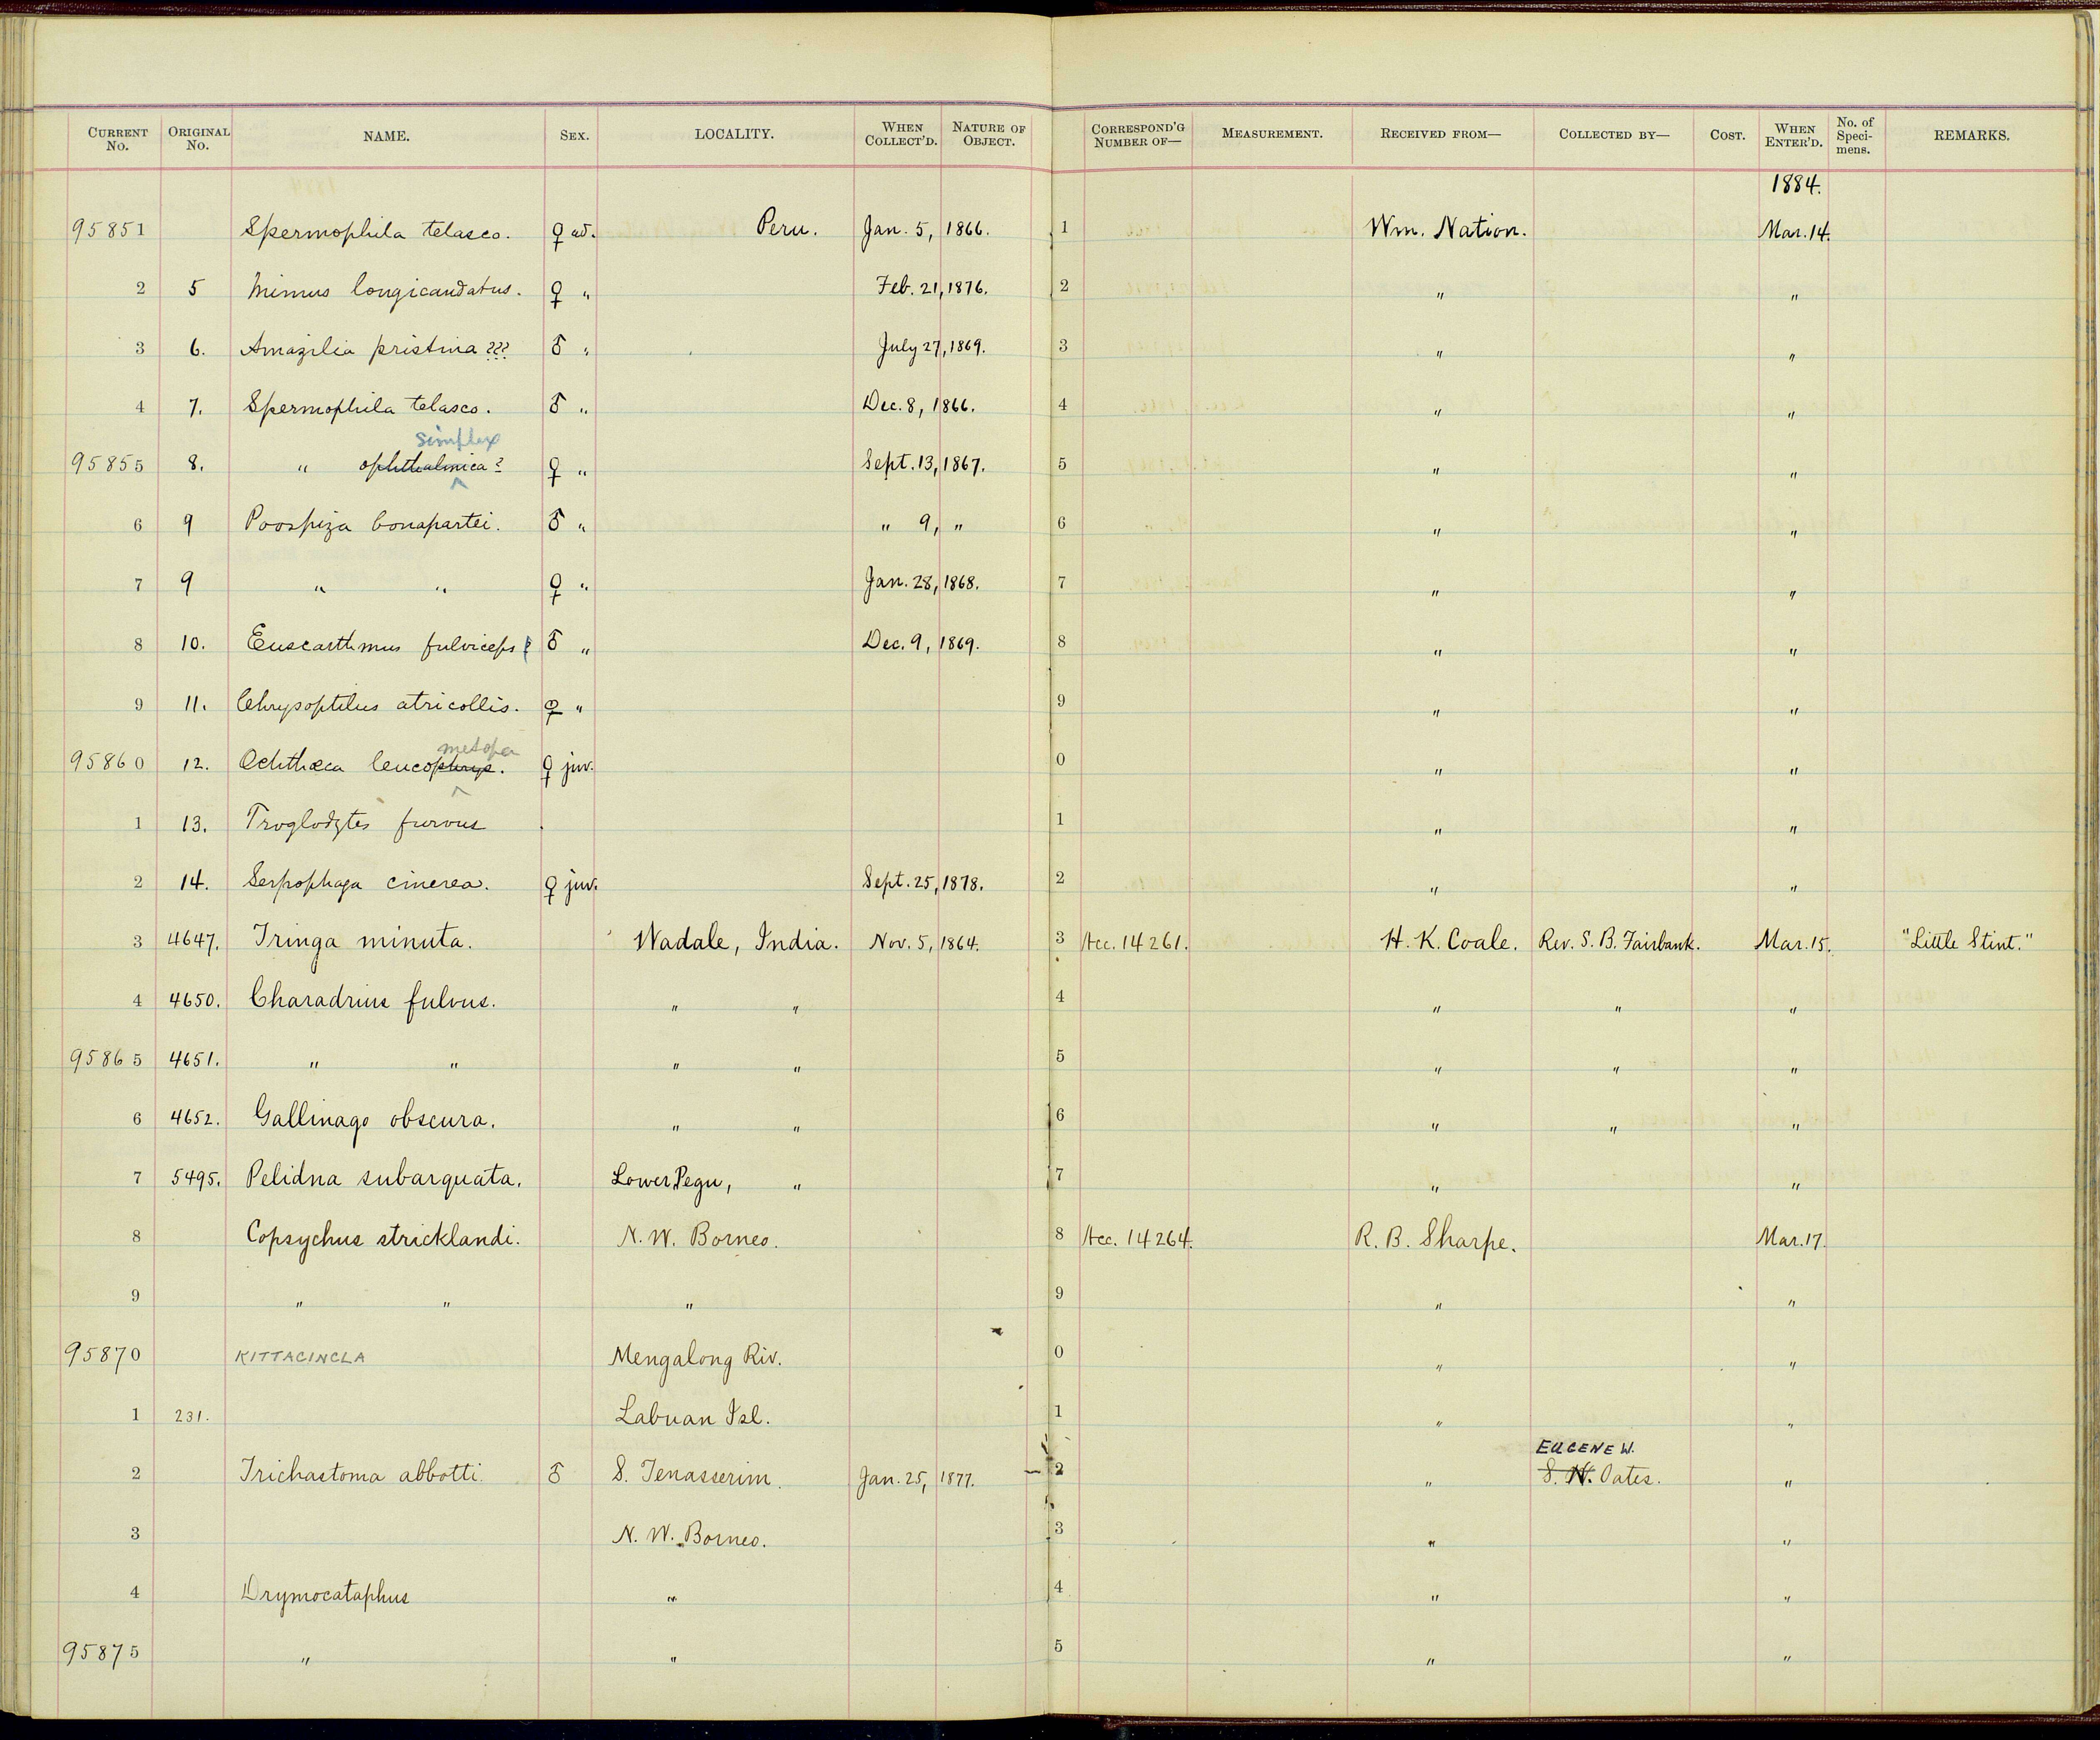 CURRENT No. ORIGINAL No. NAME. SEX. LOCALITY. WHEN COLLECT'D. NATURE OF OBJECT. CORRESPOND'G NUMBER OF— MEASUREMENT. RECEIVED FROM— COLLECTED BY— COST. WHEN ENTER'D. No. of Speci-mens. REMARKS.
1884.
95851 Spermophila telasco. ♀ ad. Peru. Jan. 5, 1866. 1 Wm. Nation. Mar. 14.
2 5 Mimus longicaudatus. ♀ " Feb. 21, 1876. 2 " "
3 6. Amazilia pristina ??? ♂ " July 27, 1869. 3 " "
4 7. Spermophila telasco. ♂ " Dec. 8, 1866. 4 " "
simplex
95855 8. " ophthalmica? ♀ " Sept. 13, 1867. 5 " "
6 9 Poospiza bonapartei. ♂ " " 9, " 6 " "
7 9 " " ♀ " Jan. 28, 1868. 7 " "
8 10. Euscarthmus fulviceps ♂ " Dec. 9, 1869. 8 " "
9 11. Chrysoptilus atricollis. ♀ " 9 " "
metopa
95860 12. Ochthœca leucophrys. ♀ juv. 0 " "
1 13. Troglodytes furvus 1 " "
2 14. Serpophaga cinerea. ♀ juv. Sept. 25, 1878. 2 " "
3 4647. Tringa minuta. Wadale, India. Nov. 5, 1864. 3 Acc. 14261. H. K. Coale. Rev. S. B. Fairbank. Mar. 15. "Little Stint."
4 4650. Charadrius fulvus. " " 4 " " "
95865 4651. " " " " 5 " " "
6 4652. Gallinago obscura. " " 6 " " "
7 5495. Pelidna subarquata. Lower Pegu, " 7 " "
8 Copsychus stricklandi. N. W. Borneo. 8 Acc. 14264. R. B. Sharpe. Mar. 17.
9 " " " 9 " "
95870 KITTACINCLA Mengalong Riv. 0 " "
1 231. Labuan Isl. 1 " "
EUGENE W.
2 Trichastoma abbotti. ♂ S. Tenasserim. Jan. 25, 1877. 2 " S. N. Oates. "
3 N. W. Borneo. 3 " "
4 Drymocataphus " 4 " "
95875 " " 5 " "